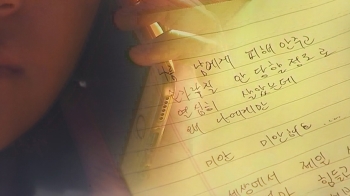 남에게 피해 안주고
손가락질 안 당할 정도로
열심히 살았는데
왜 나에게만
미안 미안해요 ....
세상에서 제일
힘들고